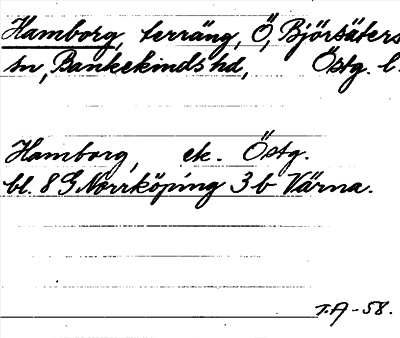 Hamborg, terräng, Ö, Björsäters
sn, Bankekinds hd, Östg. l.
Hamborg, ek. Östg.
bl. 8 G Norrköping 3 b Värna.
T.A-58.